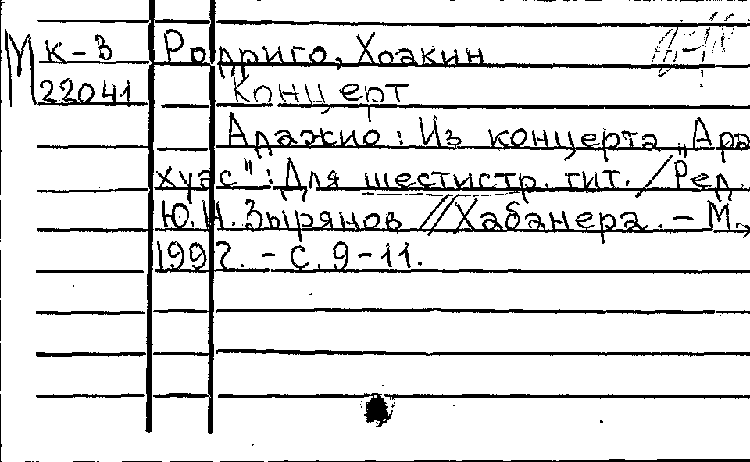 М к-3 Родриго, Хоакин
22041 Концерт
Адажио: Из концерта „Ара
хуэс": Для шестистр. гит. / Ред.
Ю.Н. Зырянов // Хабанера. – М.,
1992. – с. 9-11.